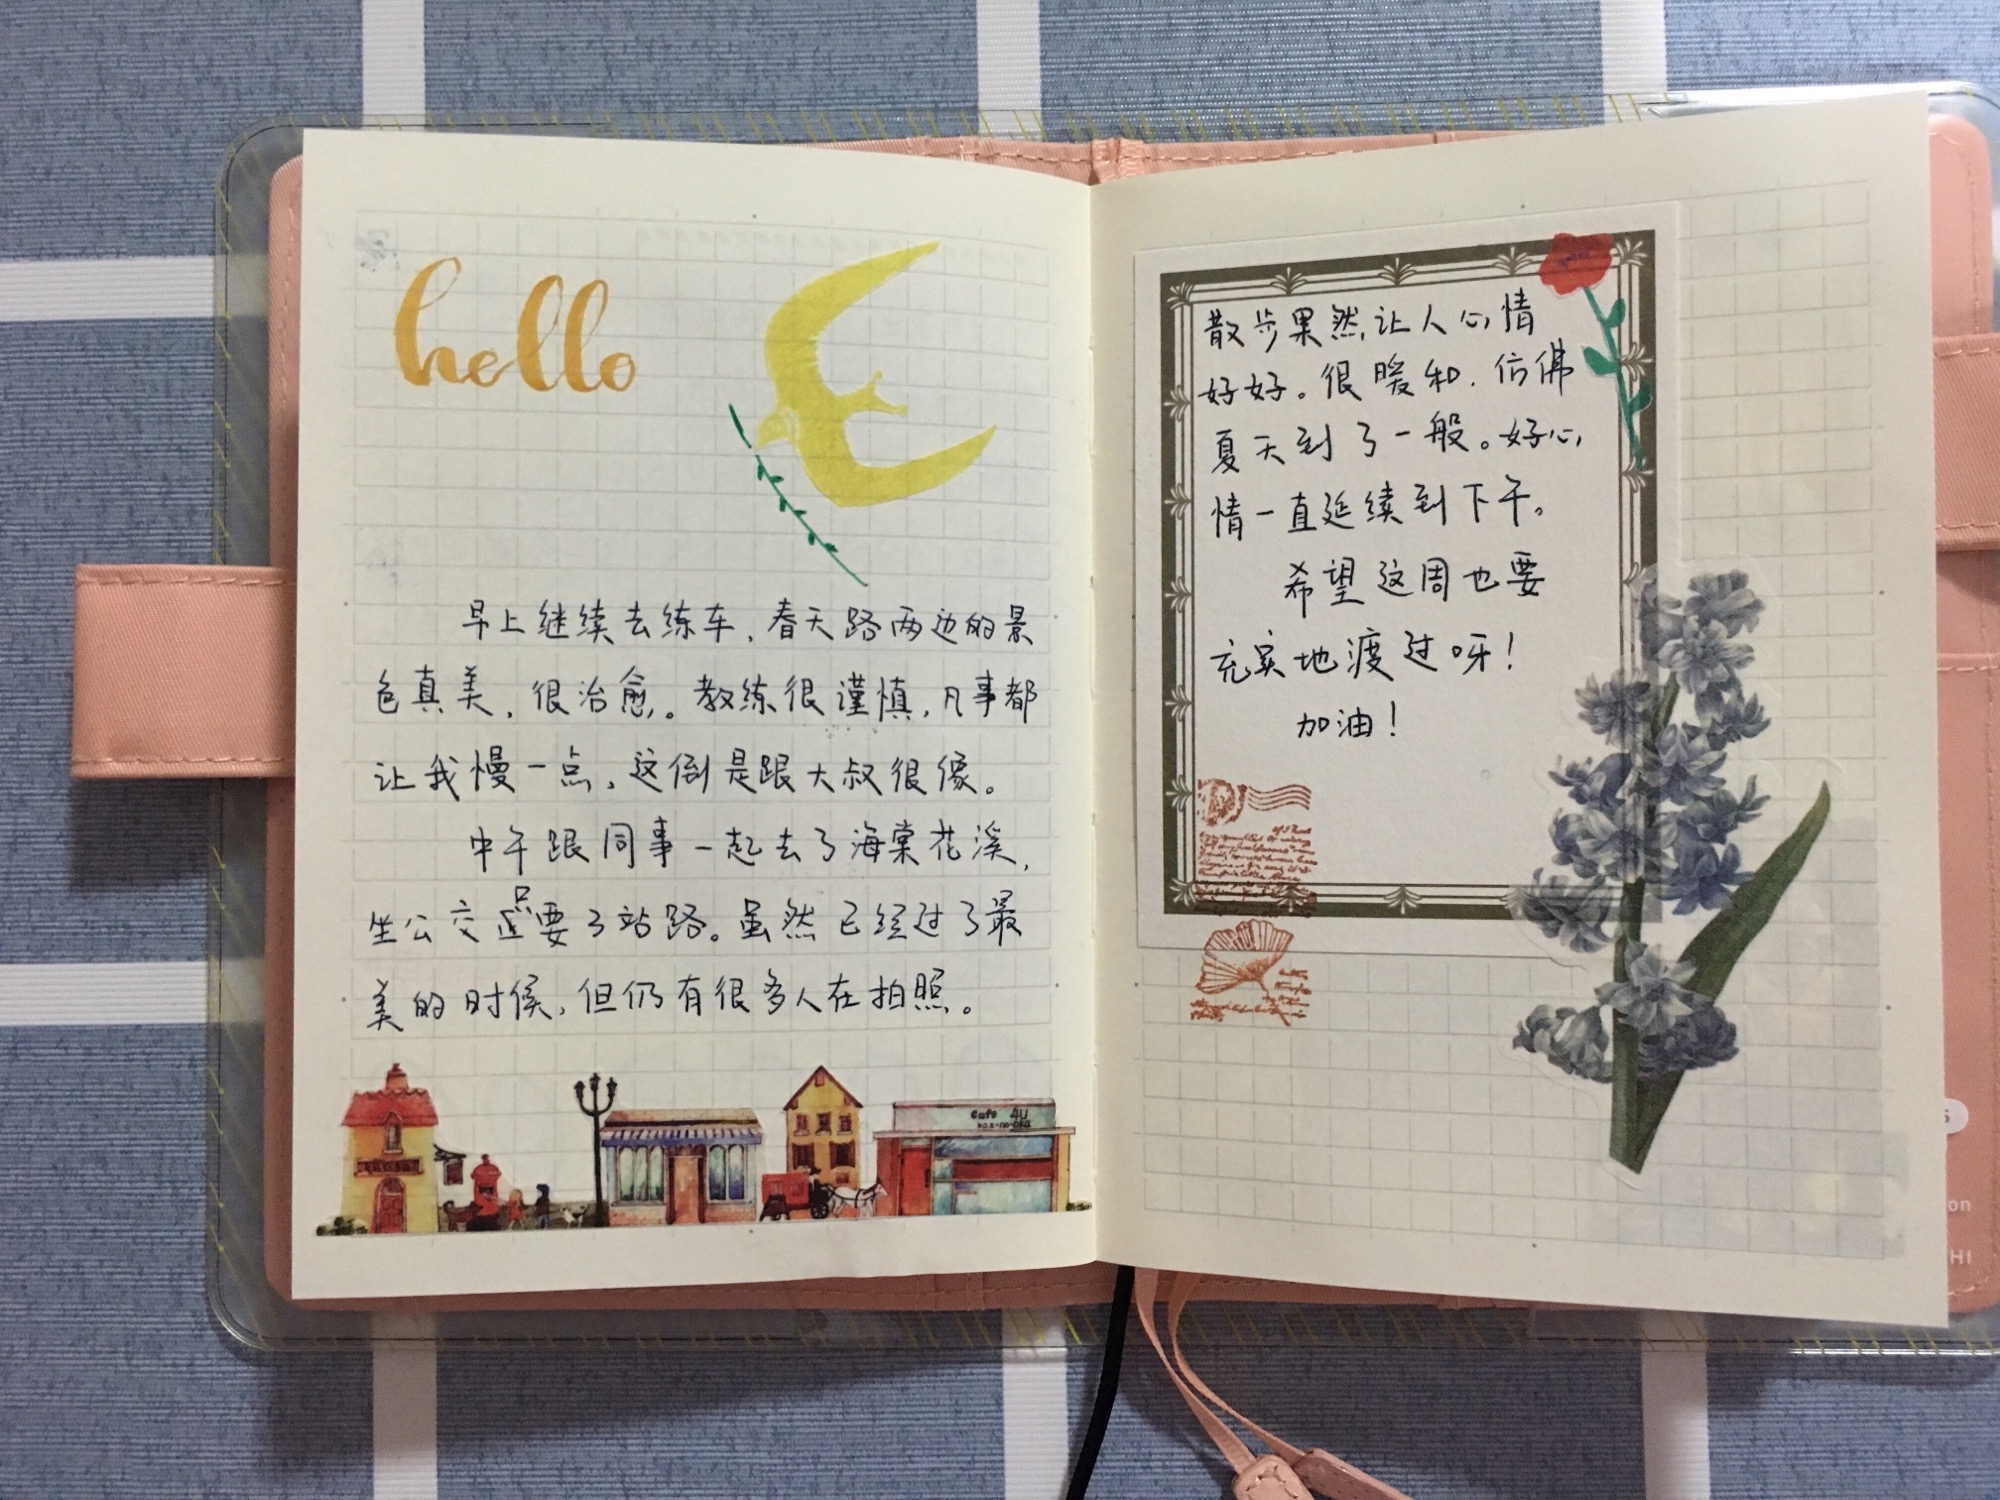 hello
早上继续去练车，春天路两边的景
色真美，很治愈。教练很谨慎，凡事都
让我慢一点，这倒是跟大叔很像。
中午跟同事一起去了海棠花溪，
坐公交只要了站路。虽然已经过了最
美的时候，但仍有很多人在拍照。
Cafe 4U
散步果然让人心情
好好。很暖和，仿佛
夏天到了一般。好心
情一直延续到下午。
希望这周也要
充实地渡过呀！
加油！
on
HI